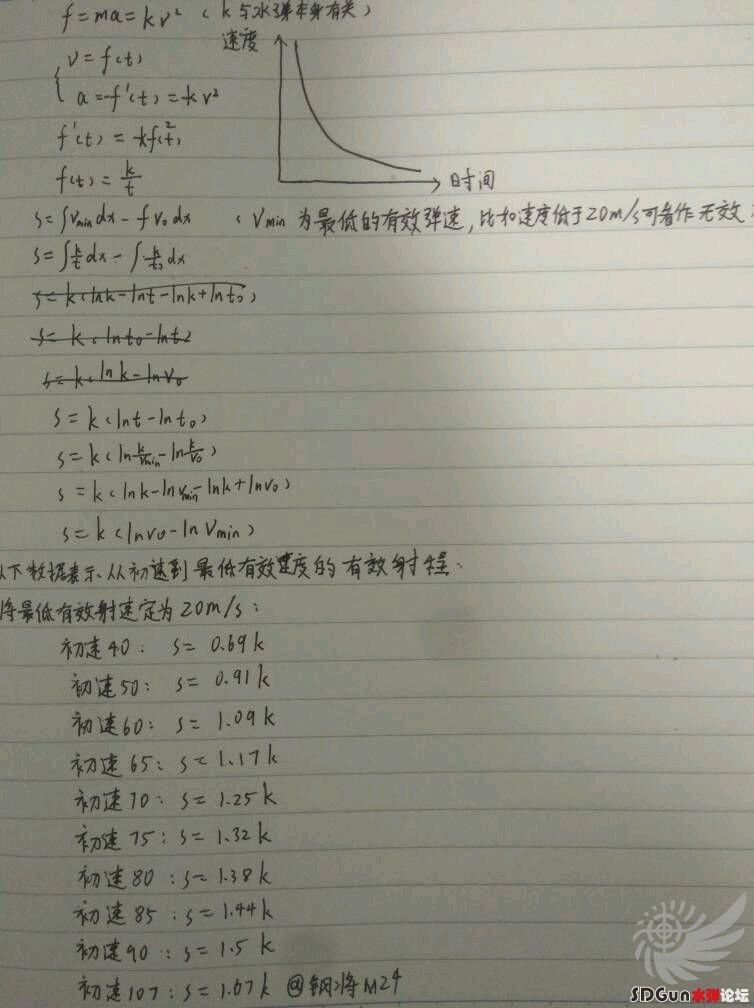 f=ma=kv² (k与水弹本身有关)
速度
v=f(t)
a=-f'(t)=-kv²
f'(t)=-kf(t)²
f(t)=k/t
时间
s=∫Vmin dx-∫v₀dx (Vmin为最低的有效弹速,比如速度低于20m/s可看作无效
s=∫k/t dx-∫k/t₀ dx
s=k(lnk-lnt-lnk+lnt₀)
s=k(lnt₀-lnt)
s=k(lnk-lnv₀
s=k(lnt-lnt₀)
s=k(ln k/Vmin-ln k/v₀)
s=k(lnk-lnVmin-lnk+lnv₀)
s=k(lnv₀-lnVmin)
以下数据表示从初速到最低有效速度的有效射程.
将最低有效射速定为20m/s:
初速40: s=0.69k
初速50: s=0.91k
初速60: s=1.09k
初速65: s=1.17k
初速70: s=1.25k
初速75: s=1.32k
初速80: s=1.38k
初速85: s=1.44k
初速90: s=1.5k
初速107: s=1.67k @钢将M24
SDGun水弹论坛